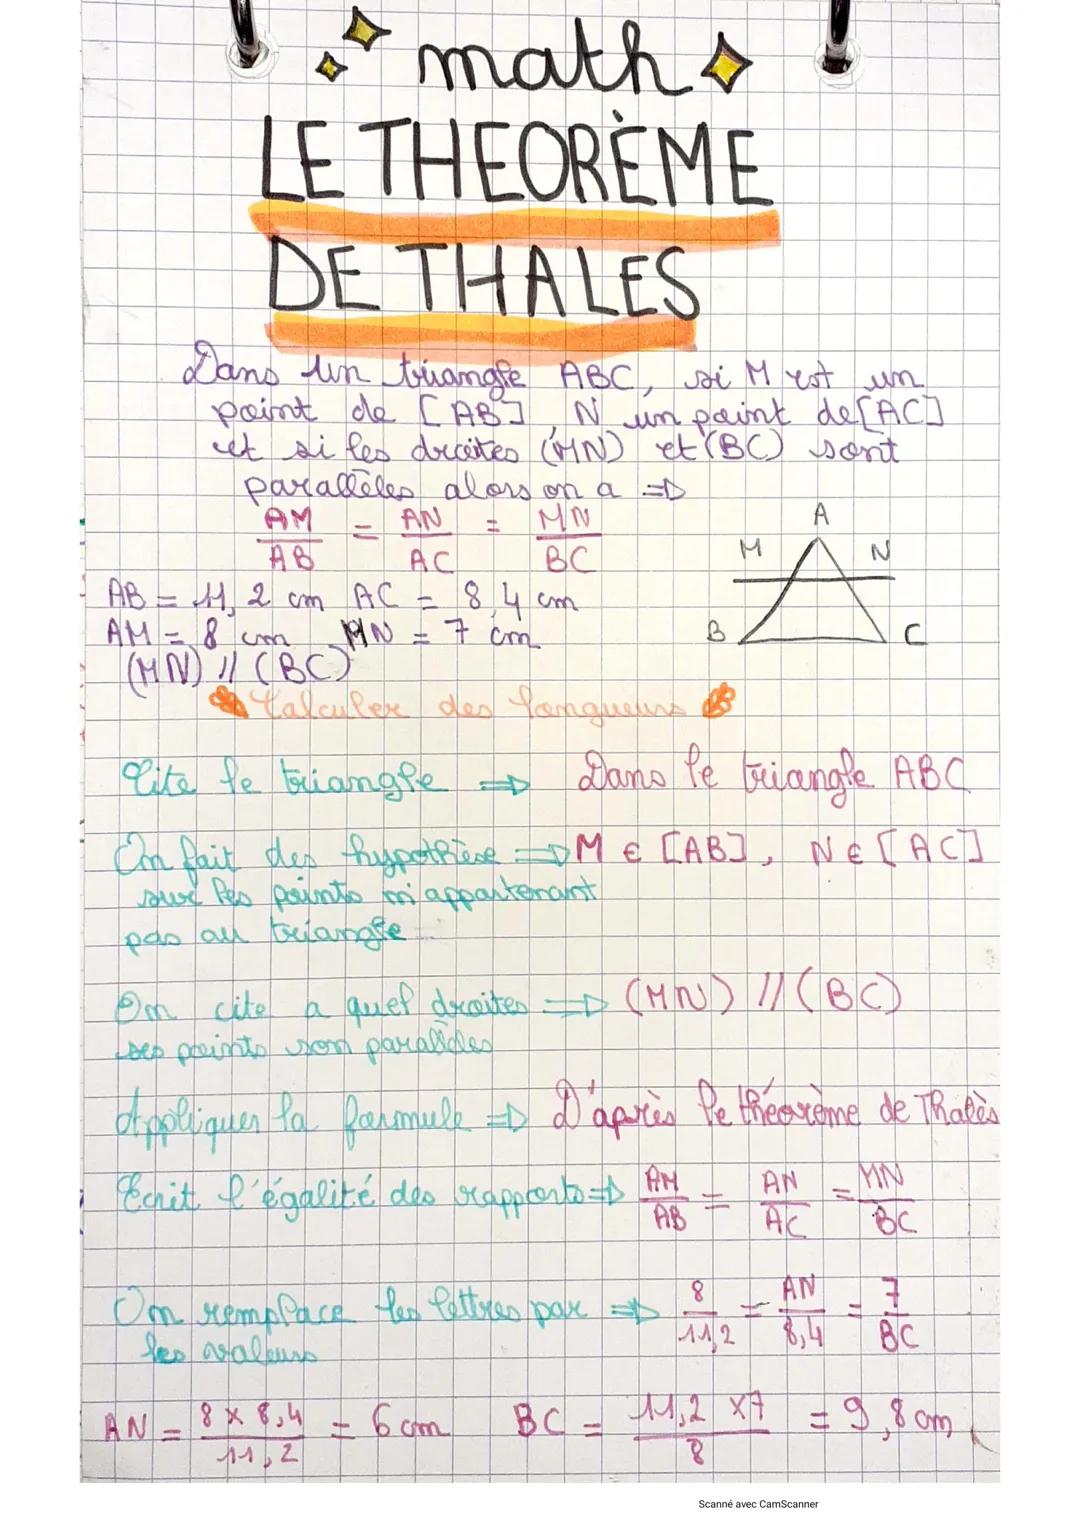 math
LE THEORÈME
DE THALES
Dans un triangle ABC, si M est un
point de [AB], N un point de [AC]
et si les droites (MN) et (BC) sont
parallèles alors on a =>
AM/AB = AN/AC = MN/BC
A
M N
B C
AB = 11,2 cm AC = 8,4 cm
AM = 8 cm MN = 7 cm
(MN) // (BC)
Calculer des longueurs
Cite le triangle => Dans le triangle ABC
On fait des hypothèse => M ∈ [AB], N ∈ [AC]
sur les points n'appartenant
pas au triangle
On cite a quel droites => (MN) // (BC)
ses points son paralèles
Appliquer la formule => D'après le théorème de Thalès
Ecrit l'égalité des rapports => AM/AB = AN/AC = MN/BC
On remplace les lettres par => 8/11,2 = AN/8,4 = 7/BC
les valeurs
AN = 8 x 8,4 / 11,2 = 6 cm BC = 11,2 x 7 / 8 = 9,8 cm
Scanné avec CamScanner